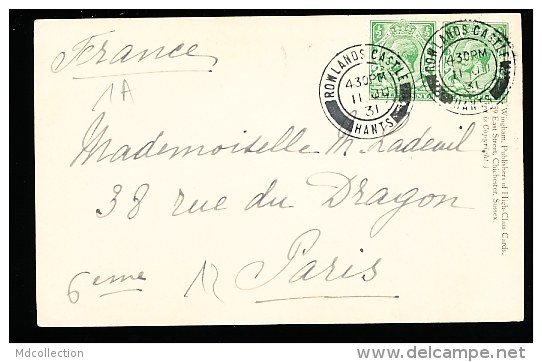 France
1A
Mademoiselle M. Ladevil
38 rue du Dragon
6eme
Paris
ROWLANDS CASTLE
4 30 PM
31
HANTS
ROWLANDS CASTLE
4 30 PM
31
HANTS
Wingham, Publishers of High-Class Cards,
39 East Street, Chichester, Sussex.
is Copyright.)
Mdcollection
delcampe.net